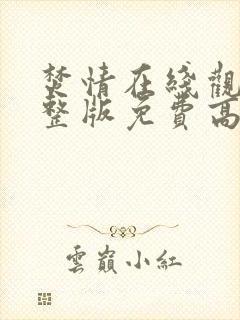 焚情在綫觀
整版免費高
雲巔小紅